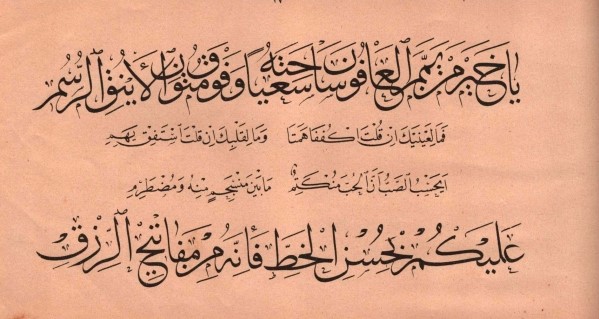 يا خير من يمم العافون ساحته سعيا وفوق متون الأينق الرسم
فما لعينيك ان قلت اكففا همتا وما لقلبك ان قلت استفق يهم
ايحسب الصب ان الحب منكتم ما بين منسجم منه ومضطرم
عليكم بحسن الخط فانه من مفاتيح الرزق